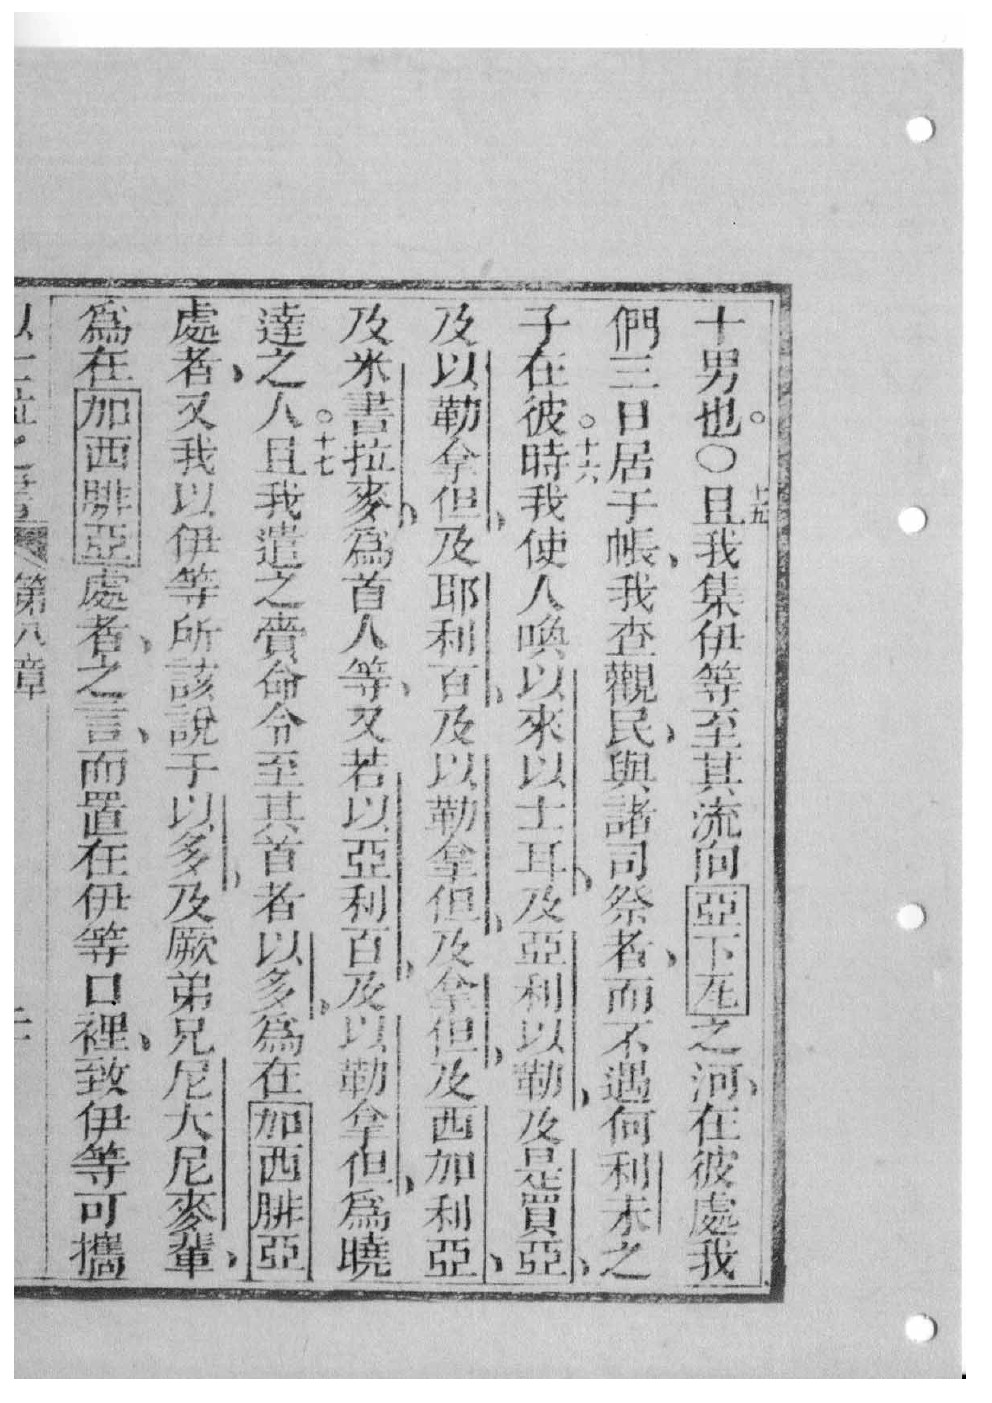 十男也。○十五且我集伊等至其流向亞下瓦之河、在彼處我
們三日居于帳、我查觀民、與諸司祭者、而不遇何利未之
子在彼。十六時我使人喚以來以士耳、及亞利以勒、及是買亞、
及以勒拿但、及耶利百、及以勒拿但、及拿但、及西加利亞、
及米書拉麥、為首人等、又若以亞利百、及以勒拿但、為曉
達之人。十七且我遣之賫命令至其首者以多、為在加西腓亞
處者、又我以伊等所該說于以多、及厥弟兄尼大尼麥輩、
為在加西腓亞處者、之言、而置在伊等口裡、致伊等可攜
以士拉之書 第八章 二